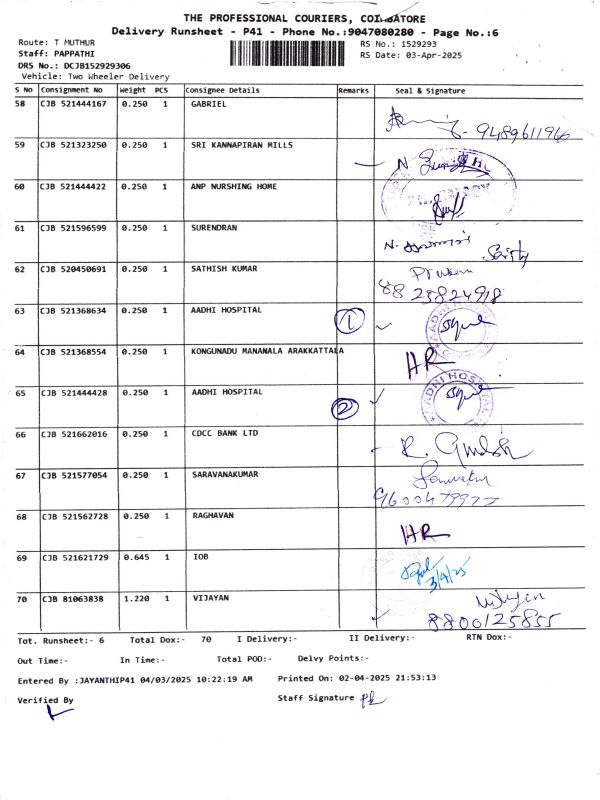 THE PROFESSIONAL COURIERS, COIMBATORE
Delivery Runsheet - P41 - Phone No.:9047080280 - Page No.:6
Route: T MUTHUR
RS No.: 1529293
Staff: PAPPATHI
RS Date: 03-Apr-2025
DRS No.: DCJB152929306
Vehicle: Two Wheeler Delivery
S No Consignment No Weight PCS Consignee Details Remarks Seal & Signature
58 CJB 521444167 0.250 1 GABRIEL
9489611966
59 CJB 521323250 0.250 1 SRI KANNAPIRAN MILLS
60 CJB 521444422 0.250 1 ANP NURSHING HOME
61 CJB 521596599 0.250 1 SURENDRAN
62 CJB 520450691 0.250 1 SATHISH KUMAR
88 25824918
63 CJB 521368634 0.250 1 AADHI HOSPITAL 1
64 CJB 521368554 0.250 1 KONGUNADU MANANALA ARAKKATTALA HR
65 CJB 521444428 0.250 1 AADHI HOSPITAL 2 AADHI HOSPITAL
66 CJB 521662016 0.250 1 CDCC BANK LTD
67 CJB 521577054 0.250 1 SARAVANAKUMAR
9600479977
68 CJB 521562728 0.250 1 RAGHAVAN HR
69 CJB 521621729 0.645 1 IOB
3/4/25
70 CJB 81063838 1.220 1 VIJAYAN Vijayan
8800125855
Tot. Runsheet:- 6 Total Dox:- 70 I Delivery:- II Delivery:- RTN Dox:-
Out Time:- In Time:- Total POD:- Delvy Points:-
Entered By :JAYANTHIP41 04/03/2025 10:22:19 AM Printed On: 02-04-2025 21:53:13
Verified By Staff Signature